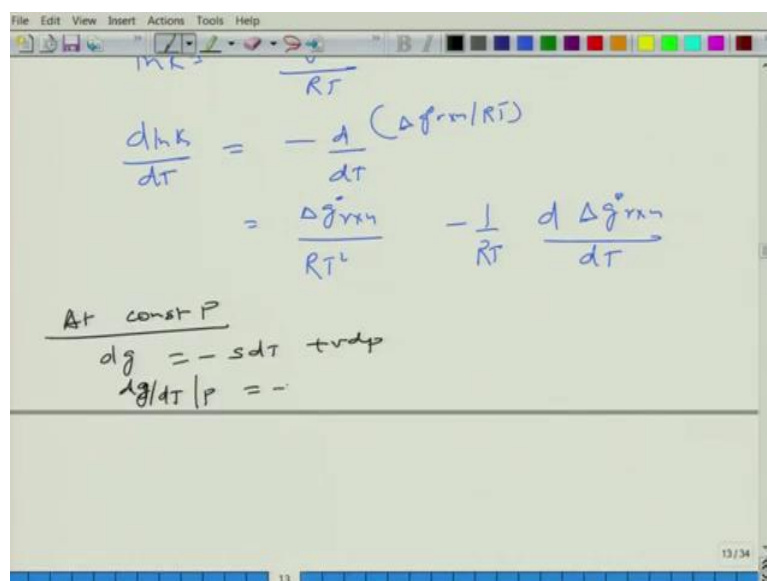 File Edit View Insert Actions Tools Help
RT
dlnK/dT = - d/dT (Δg°rxn/RT)
= Δg°rxn/RT² - 1/RT d Δg°rxn/dT
At const P
dg = - sdT + vdp
dg/dT|P = -
13/34
13